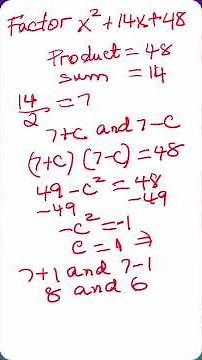 Factor x²+14x+48
Product = 48
sum = 14
14/2 = 7
7+c and 7-c
(7+c) (7-c) = 48
49 - c² = 48
-49 -49
-c² = -1
c = 1 ⇒
7+1 and 7-1
8 and 6